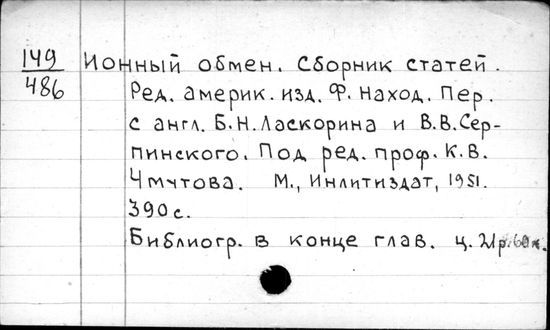 149 Ионный обмен. Сборник статей.
486 Ред. америк. изд. Ф. Наход. Пер.
с англ. Б.Н. Ласкорина и В.В. Сер-
пинского. Под ред. проф. К.В.
Чмутова. М., Инлитиздат, 1951.
390 с.
Библиогр. в конце глав. ц. 21р. 60к.